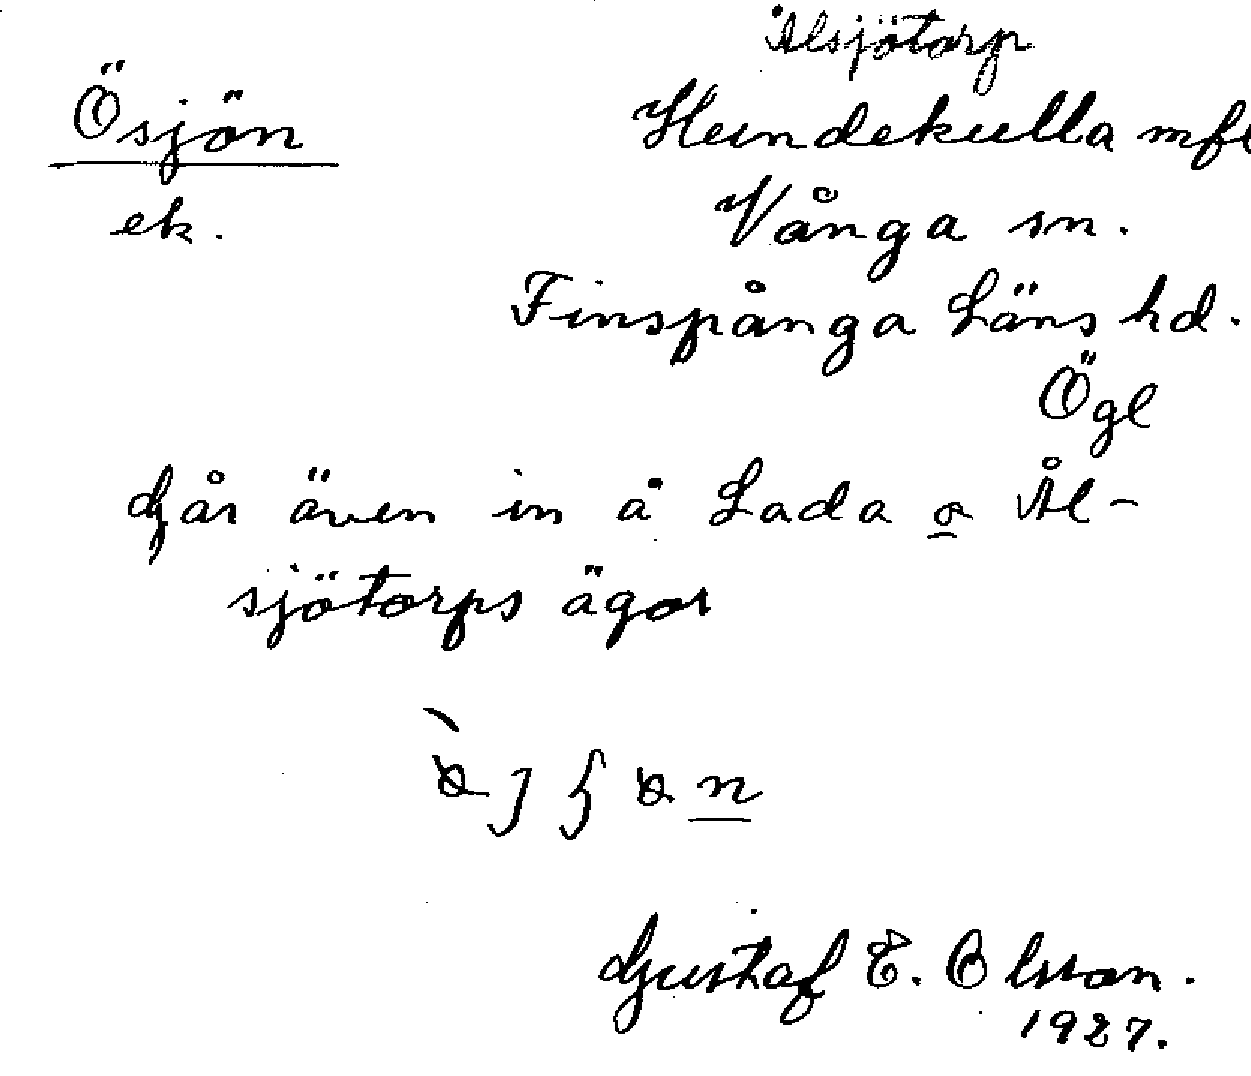 Ålsjötorp
Ösjön
Hundekulla mfl
ek.
Vånga sn.
Finspånga Läns hd.
Ögl
Går även in å Lada o Ål-
sjötorps ägor
Gustaf E. Olsson.
1927.